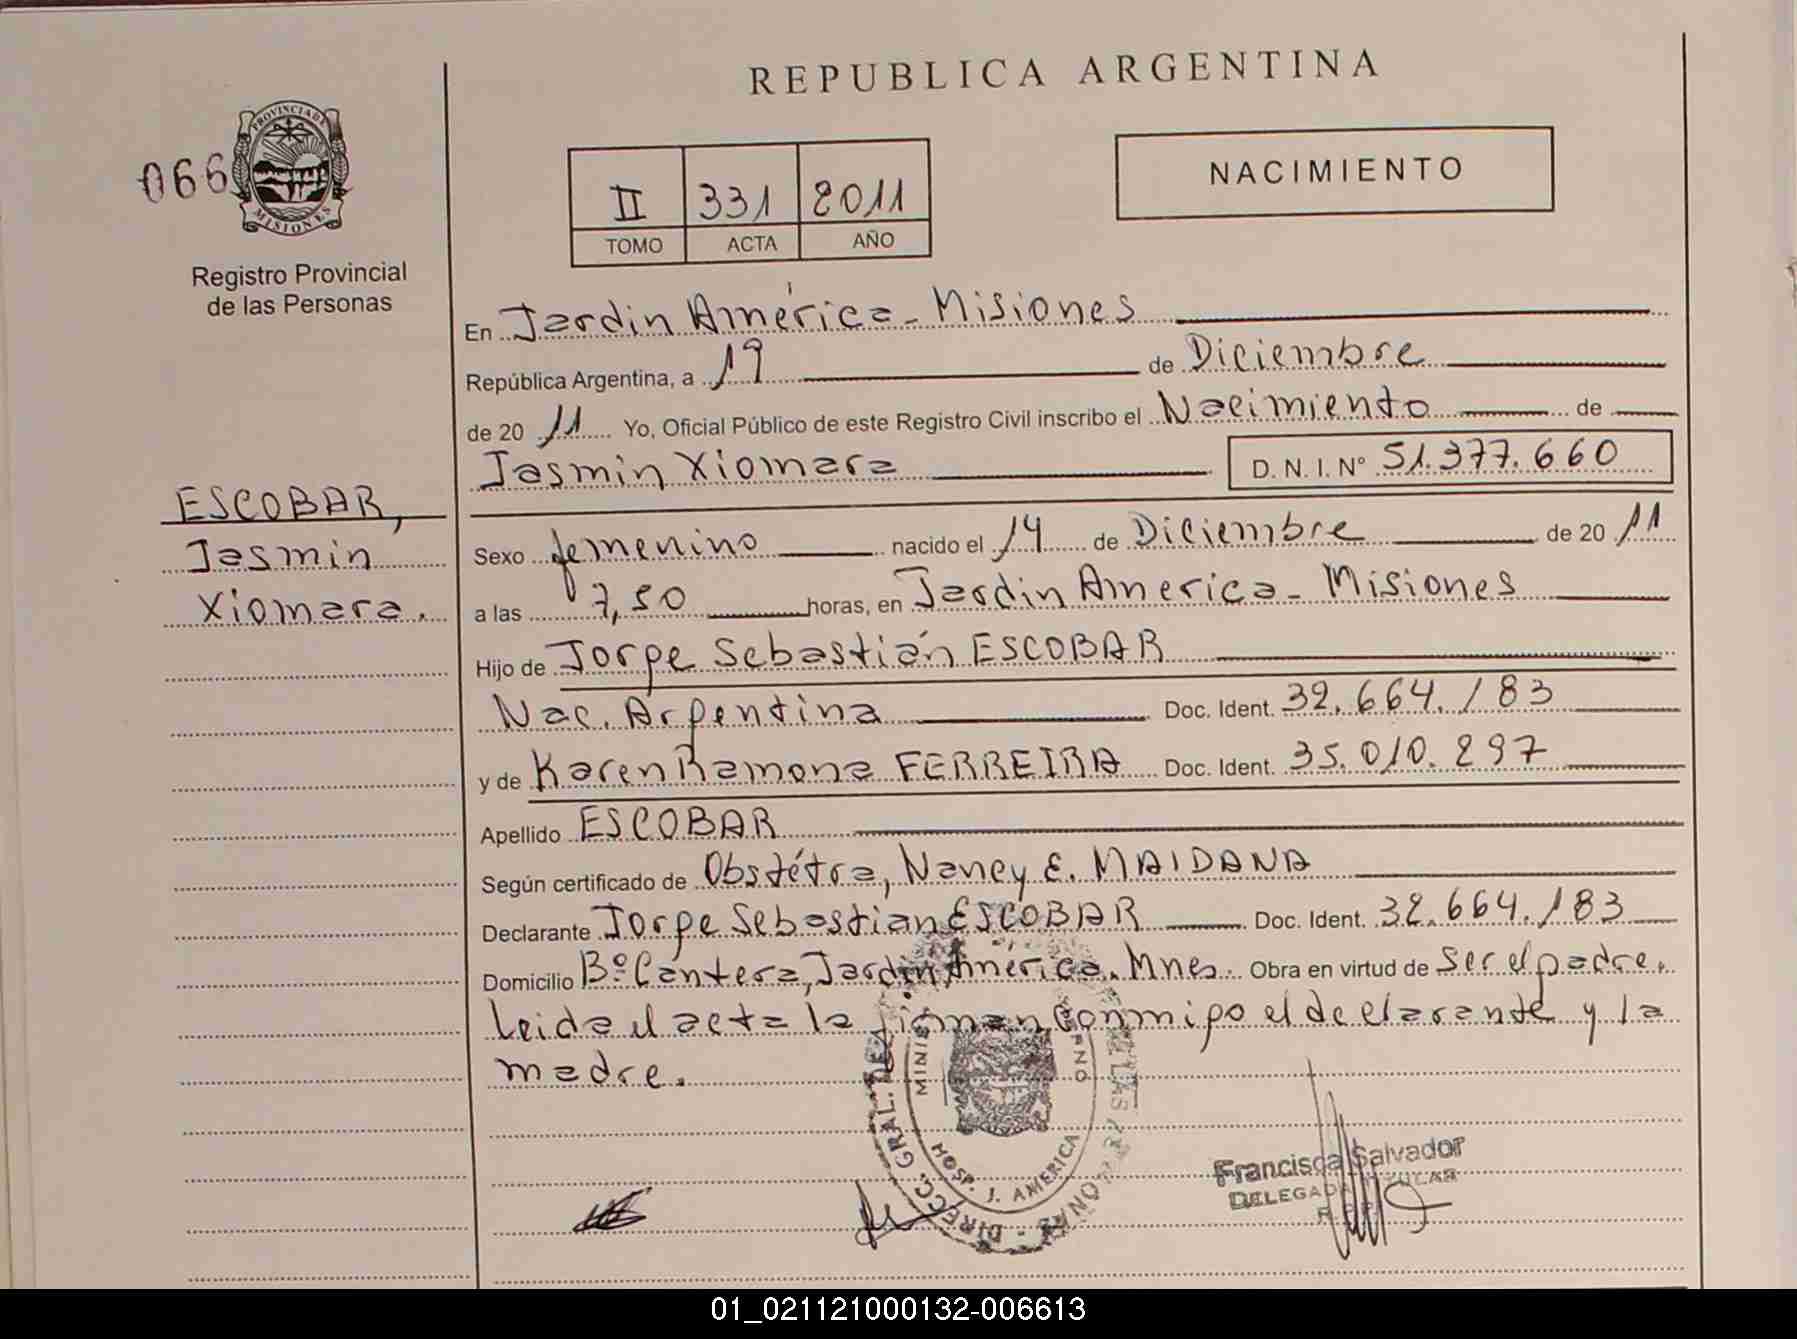 REPUBLICA ARGENTINA
PROVINCIA DE
MISIONES
066
Registro Provincial
de las Personas
II 331 2011
TOMO ACTA AÑO
NACIMIENTO
En Jardin América - Misiones
República Argentina, a 19 de Diciembre
de 20 11 Yo, Oficial Público de este Registro Civil inscribo el Nacimiento de
Jasmin Xiomara D. N. I. N° 51.377.660
ESCOBAR,
Jasmin
Xiomara.
Sexo femenino nacido el 14 de Diciembre de 20 11
a las 7,50 horas, en Jardin America - Misiones
Hijo de Jorge Sebastián ESCOBAR
Nac. Argentina Doc. Ident. 32.664.183
y de Karen Ramona FERREIRA Doc. Ident. 35.010.297
Apellido ESCOBAR
Según certificado de Obstétra, Nancy E. MAIDANA
Declarante Jorge Sebastian ESCOBAR Doc. Ident. 32.664.183
Domicilio B° Cantera, Jardin América. Mnes. Obra en virtud de ser el padre.
Leida el acta la firman conmigo el declarante y la
madre.
DIRECC. GRAL. DE LAS
HOSP. J. AMERICA
Francisca Salvador
DELEGADA TITULAR
01_021121000132-006613